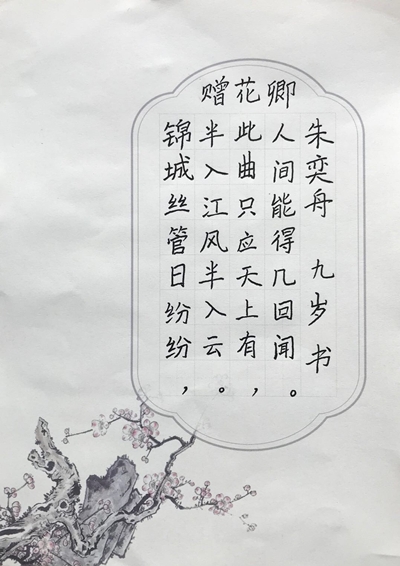 赠花卿
锦城丝管日纷纷，
半入江风半入云。
此曲只应天上有，
人间能得几回闻。
朱奕舟 九岁 书